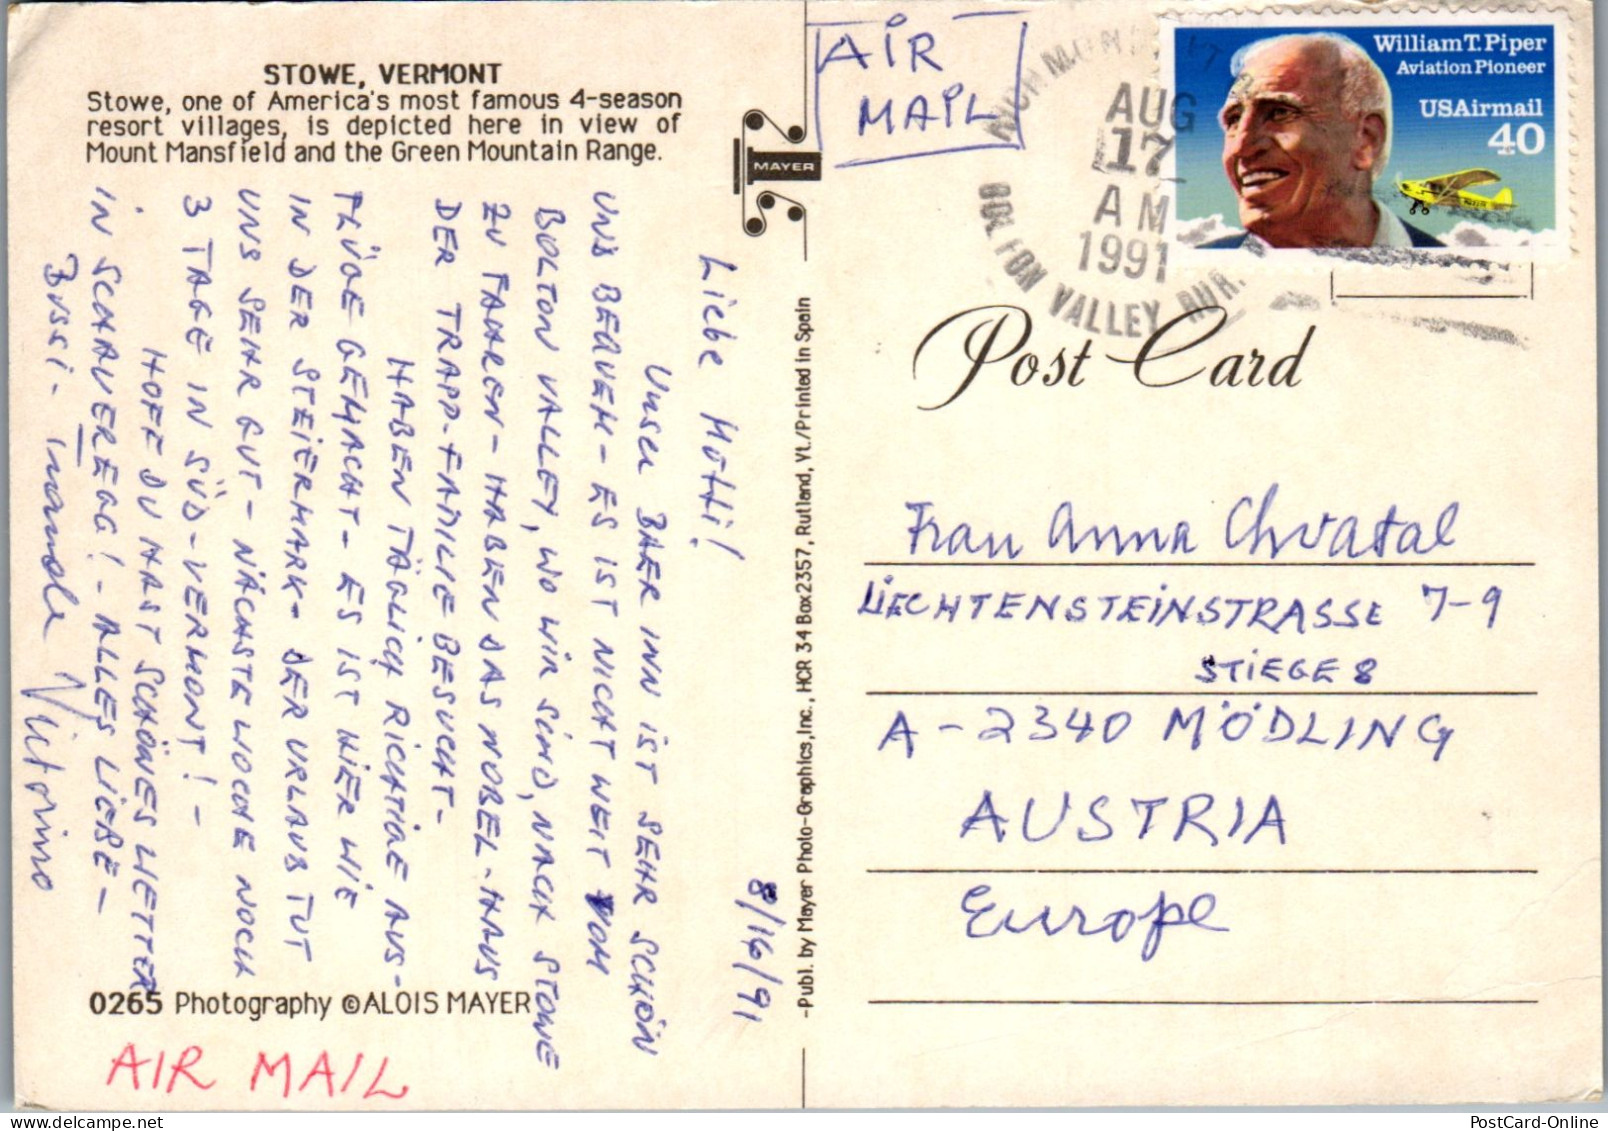 STOWE, VERMONT
Stowe, one of America's most famous 4-season
resort villages, is depicted here in view of
Mount Mansfield and the Green Mountain Range.
8/16/91
Liebe Mutti!
Unser BAER INN IST SEHR SCHÖN
UND BEQUEM - ES IST NICHT WEIT VOM
BOLTON VALLEY, WO WIR SIND, NACH STOWE
ZU FAHREN - HABEN DAS NOBEL-HAUS
DER TRAPP-FAMILIE BESUCHT -
HABEN TÄGLICH RICHTIGE AUS-
FLÜGE GEMACHT - ES IST HIER WIE
IN DER STEIERMARK - DER URLAUB TUT
UNS SEHR GUT - NÄCHSTE WOCHE NOCH
3 TAGE IN SÜD-VERMONT! -
HOFE DU HAST SCHÖNES WETTER
IN SCHAUEREGG! - ALLES LIEBE -
Bussi -
0265 Photography ©ALOIS MAYER
AIR MAIL
MAYER
-Publ. by Mayer Photo-Graphics,Inc., HCR 34 Box2357, Rutland, Vt./Printed in Spain
AIR
MAIL
AUG
17
AM
1991
VALLEY
William T. Piper
Aviation Pioneer
USAirmail
40
Post Card
Frau Anna Chvatal
LIECHTENSTEINSTRASSE 7-9
STIEGE 8
A-2340 MÖDLING
AUSTRIA
Europe
PostCard-Online